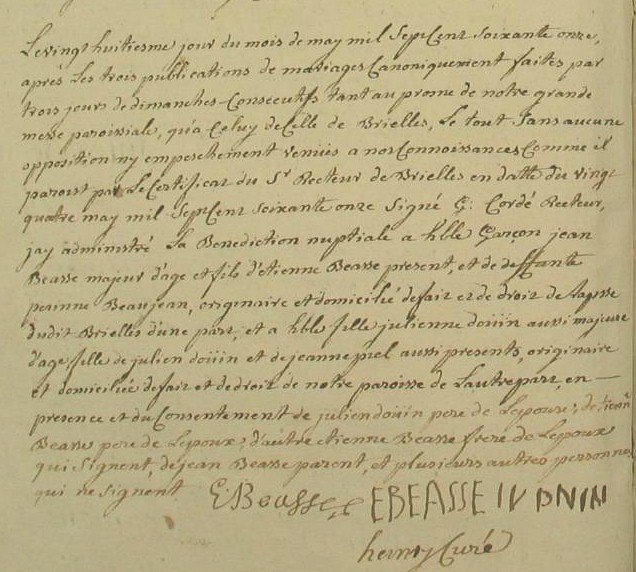 Le vingt huitiesme jour du mois de may mil Sept Cent Soixante onze,
aprés Les trois publications de mariages Canoniquement faites par
trois jours de dimanches Consecutifs tant au prosne de notre grande
messe paroissiale, qu'a Celuy de Celle de Brielles, Le tout Sans aucune
opposition ny empeschement venües a nos Connoissances Comme il
paroist par Le Certificat du Sr Recteur de Brielles en datte du vingt
quatre may mil Sept Cent soixante onze Signé G: Cordé Recteur,
jay administré La Benediction nuptiale a hble Garçon jean
Beasse majeur d'age et fils d'etienne Beasse present, et de deffunte
perinne Beaujean, originaire et domicilié de fait et de droit de
dudit Brielles d'une part, et a hble fille julienne doüin aussi majeure
d'age, fille de julien doüin et de jeanne piel aussi presents, originaire
et domiciliée de fait et de droit de notre paroisse de Lautre part, en
presence et du Consentement de julien doüin pere de Lepouse, detienne
Beasse pere de Lepoux, d'autre etienne Beasse frere de Lepoux
qui Signent, de jean Beasse parent, et plusieurs autres personnes
qui ne signent E. Beasse EBEASSE IV DNIN
henry Curé